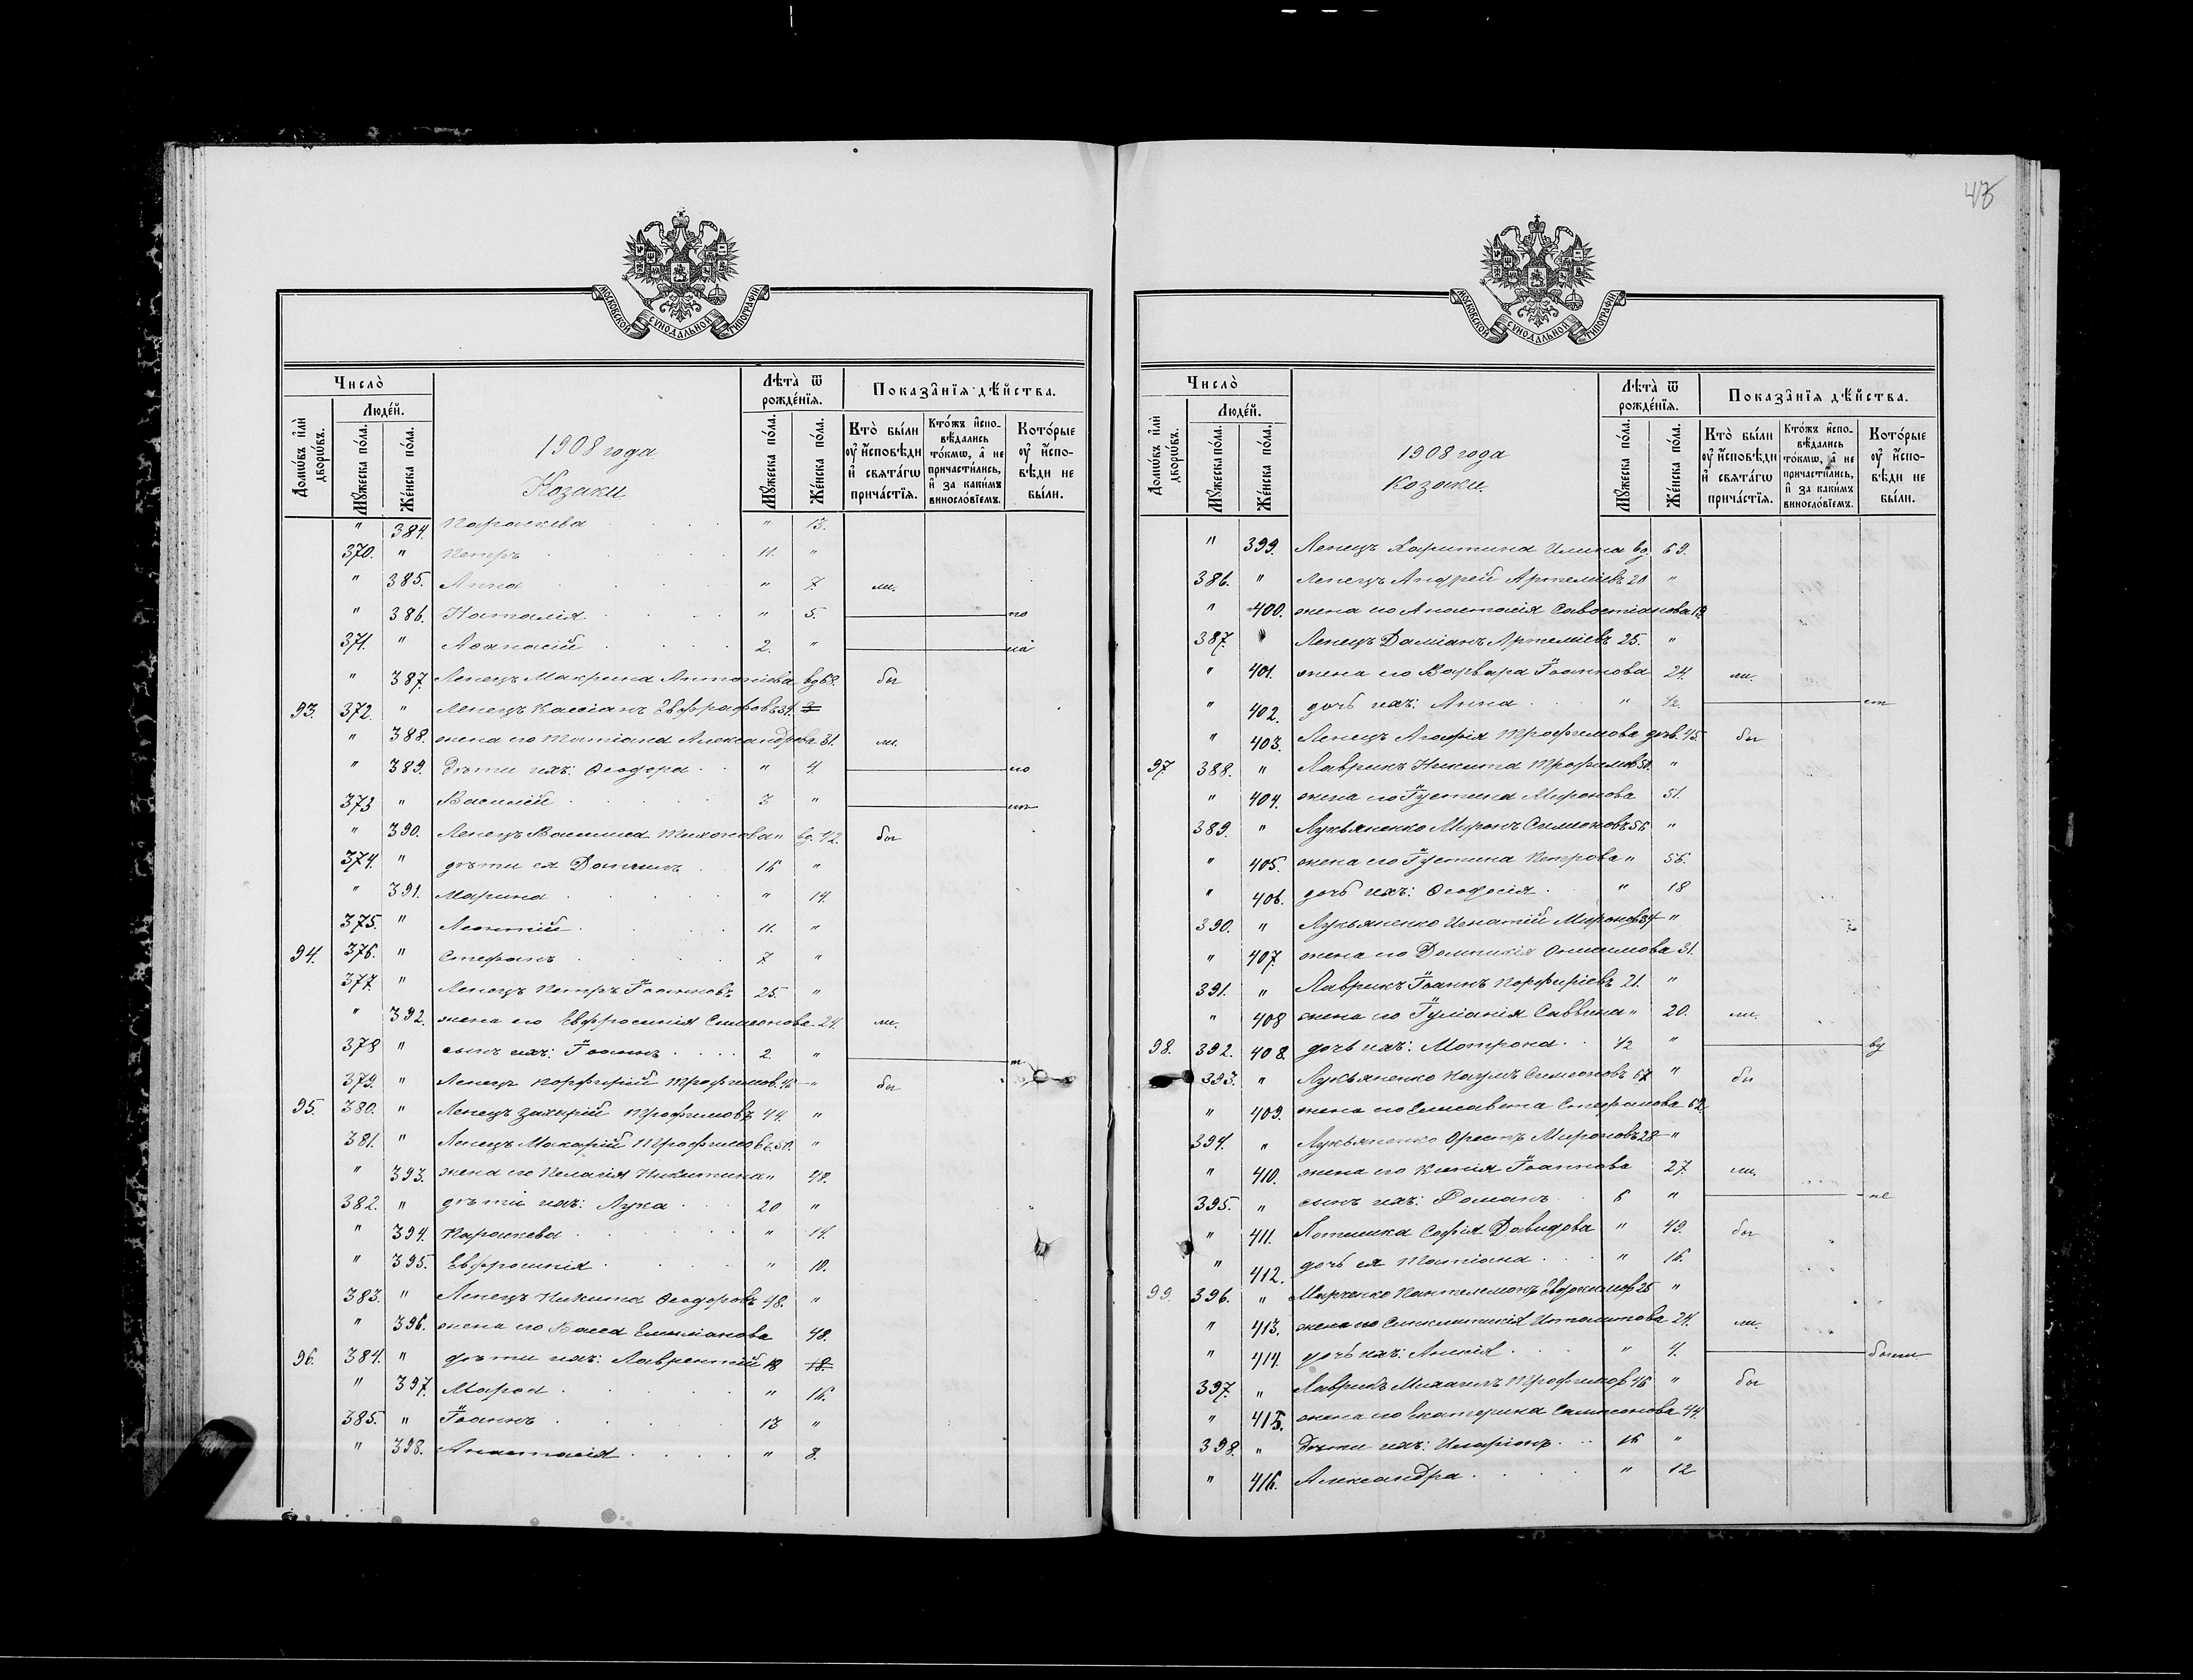 43
МОСКОВСКОЙ СѴНОДАЛЬНОЙ ТИПОГРАФІИ
Число̀
Домѡ́въ и҆лѝ дворѡ́въ.
Людей.
Мꙋжеска по́ла.
Же́нска по́ла.
1908 года
Козаки
Лѣта̀ ѿ рожде́нїѧ.
Мꙋжеска по́ла.
Же́нска по́ла.
Показа̑нїѧ дѣ́йства.
Кто̀ бы́ли ᲂу҆ и҆́сповѣди и҆ свѧта́гѡ прича́стїѧ.
Кто́жъ и҆спо-вѣ́дались то́кмѡ, а҆ не причасти́лись, и҆ за каки́мъ винослові́емъ.
Кото́рые ᲂу҆ и҆́спо-вѣди не бы́ли.
" 384. Параскева " 13.
370. " Петръ 11. "
" 385. Анна " 7. ли.
" 386. Наталія " 5. по
371. " Аѳанасій 2. "
" 387. Ленецъ Макрина Антоніева вд.
бы
93. 372. " Ленецъ Кассіанъ Евграфовъ 34.
" 388. жена его Татіана Александрова 31. ли.
" 389. Дѣти ихъ: Ѳеодора " 4. по
373 " Василій 3 "
" 390. Ленецъ Василиса Тихонова " вд. 42. бы
374. " дѣти ея Даніилъ 16 "
" 391. Марина " 14.
375. " Леонтій 11. "
94. 376. " Стефанъ 7. "
377. " Ленецъ Петръ Іоанновъ 25. "
" 392. жена его Евфросинія Симеонова 24. ли.
378 " сынъ ихъ: Іоаннъ 2. " т
379. " Ленецъ Порфирій Трофимов. " бы
95. 380. " Ленецъ Захарій Трофимовъ 44. "
381. " Ленецъ Макарій Трофимовъ 50. "
" 393. жена его Пелагія Никитина " 48.
382. " дѣти ихъ: Лука 20 "
" 394. Параскева " 14.
" 395. Евфросинія " 10.
383. " Ленецъ Никита Ѳеодоровъ 48. "
" 396. жена его Васса Емиліанова 48.
96. 384. " дѣти ихъ: Лаврентій 18 18.
" 397. Марѳа " 16.
385. " Іоаннъ 13 "
" 398. Анастасія " 8.
МОСКОВСКОЙ СѴНОДАЛЬНОЙ ТИПОГРАФІИ
Число̀
Домѡ́въ и҆лѝ дворѡ́въ.
Людей.
Мꙋжеска по́ла.
Же́нска по́ла.
1908 года
Козаки.
Лѣта̀ ѿ рожде́нїѧ.
Мꙋжеска по́ла.
Же́нска по́ла.
Показа̑нїѧ дѣ́йства.
Кто̀ бы́ли ᲂу҆ и҆́сповѣди и҆ свѧта́гѡ прича́стїѧ.
Кто́жъ и҆спо-вѣ́дались то́кмѡ, а҆ не причасти́лись, и҆ за каки́мъ винослові́емъ.
Кото́рые ᲂу҆ и҆́спо-вѣди не бы́ли.
" 399. Ленецъ Харитина Илина вд. 69.
386. " Ленецъ Андрей Артеміевъ 20 "
" 400. жена его Анастасія Савостіанова 19.
387. " Ленецъ Даміанъ Артеміевъ 25. "
" 401. жена его Варвара Іоаннова 24. ли.
" 402. дочь ихъ: Анна " 1/2. ст
" 403. Ленецъ Агафія Трофимова дѣв. 45. бы
97. 388. " Лаврикъ Никита Трофимов 50. "
" 404. жена его Іустина Миронова 51.
389. " Лукьяненко Миронъ Симеоновъ 56 "
" 405. жена его Іустина Петрова " 56.
" 406. дочь ихъ: Ѳеодосія " 18
390. " Лукьяненко Игнатій Миронов 34 "
" 407. жена его Домникія Онисимова 31.
391. " Лаврикъ Іоаннъ Порфиріевъ 21. "
" 408 жена его Іуліанія Саввина " 20. ли.
98. 392. 408. дочь ихъ: Мотрона 1/2 " ву
393. " Лукьяненко Наумъ Симеоновъ 67 " бы
" 409. жена его Елисавета Стефанова 62.
394. " Лукьяненко Орестъ Мироновъ 28 "
" 410. жена его Ксенія Іоаннова 27. ли.
395. " сынъ ихъ: Романъ 6 " не
" 411. Софія Давидова " 49. бы
" 412. дочь ея Татіана " 16.
99. 396. " Марченко Пантелемонъ Евдокимов 25 "
" 413. жена его Синклитикія Ипполитова 24. ли.
" 414. дочь ихъ: " 4. были
397. " Лаврикъ Михаилъ Трофимов 46 " бы
" 415. жена его Екатерина Сампсонова 44.
398. " Дѣти ихъ: Иларіонъ 16 "
" 416. Александра " 12